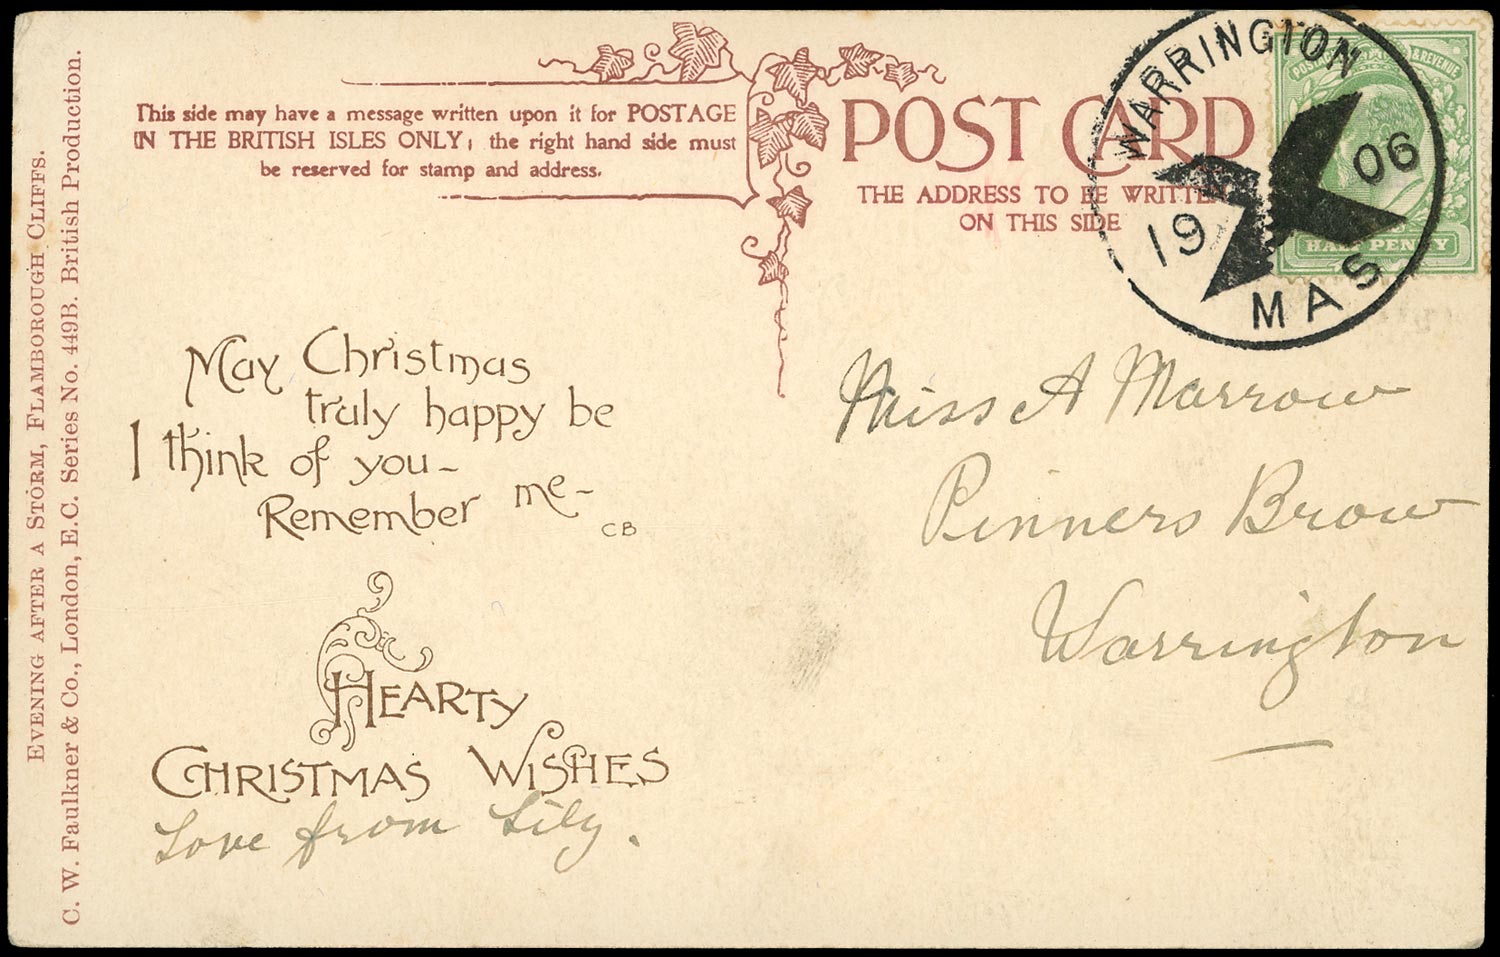 This side may have a message written upon it for POSTAGE
IN THE BRITISH ISLES ONLY; the right hand side must
be reserved for stamp and address.
POST CARD
THE ADDRESS TO BE WRITTEN
ON THIS SIDE
WARRINGTON
19 06
MAS
& REVENUE
HALF PENNY
EVENING AFTER A STORM, FLAMBOROUGH CLIFFS.
C. W. Faulkner & Co., London, E.C. Series No. 449B. British Production.
May Christmas
truly happy be
I think of you-
Remember me-
CB
HEARTY
CHRISTMAS WISHES
Love from Lily.
Miss A Marrow
Pinners Brow
Warrington